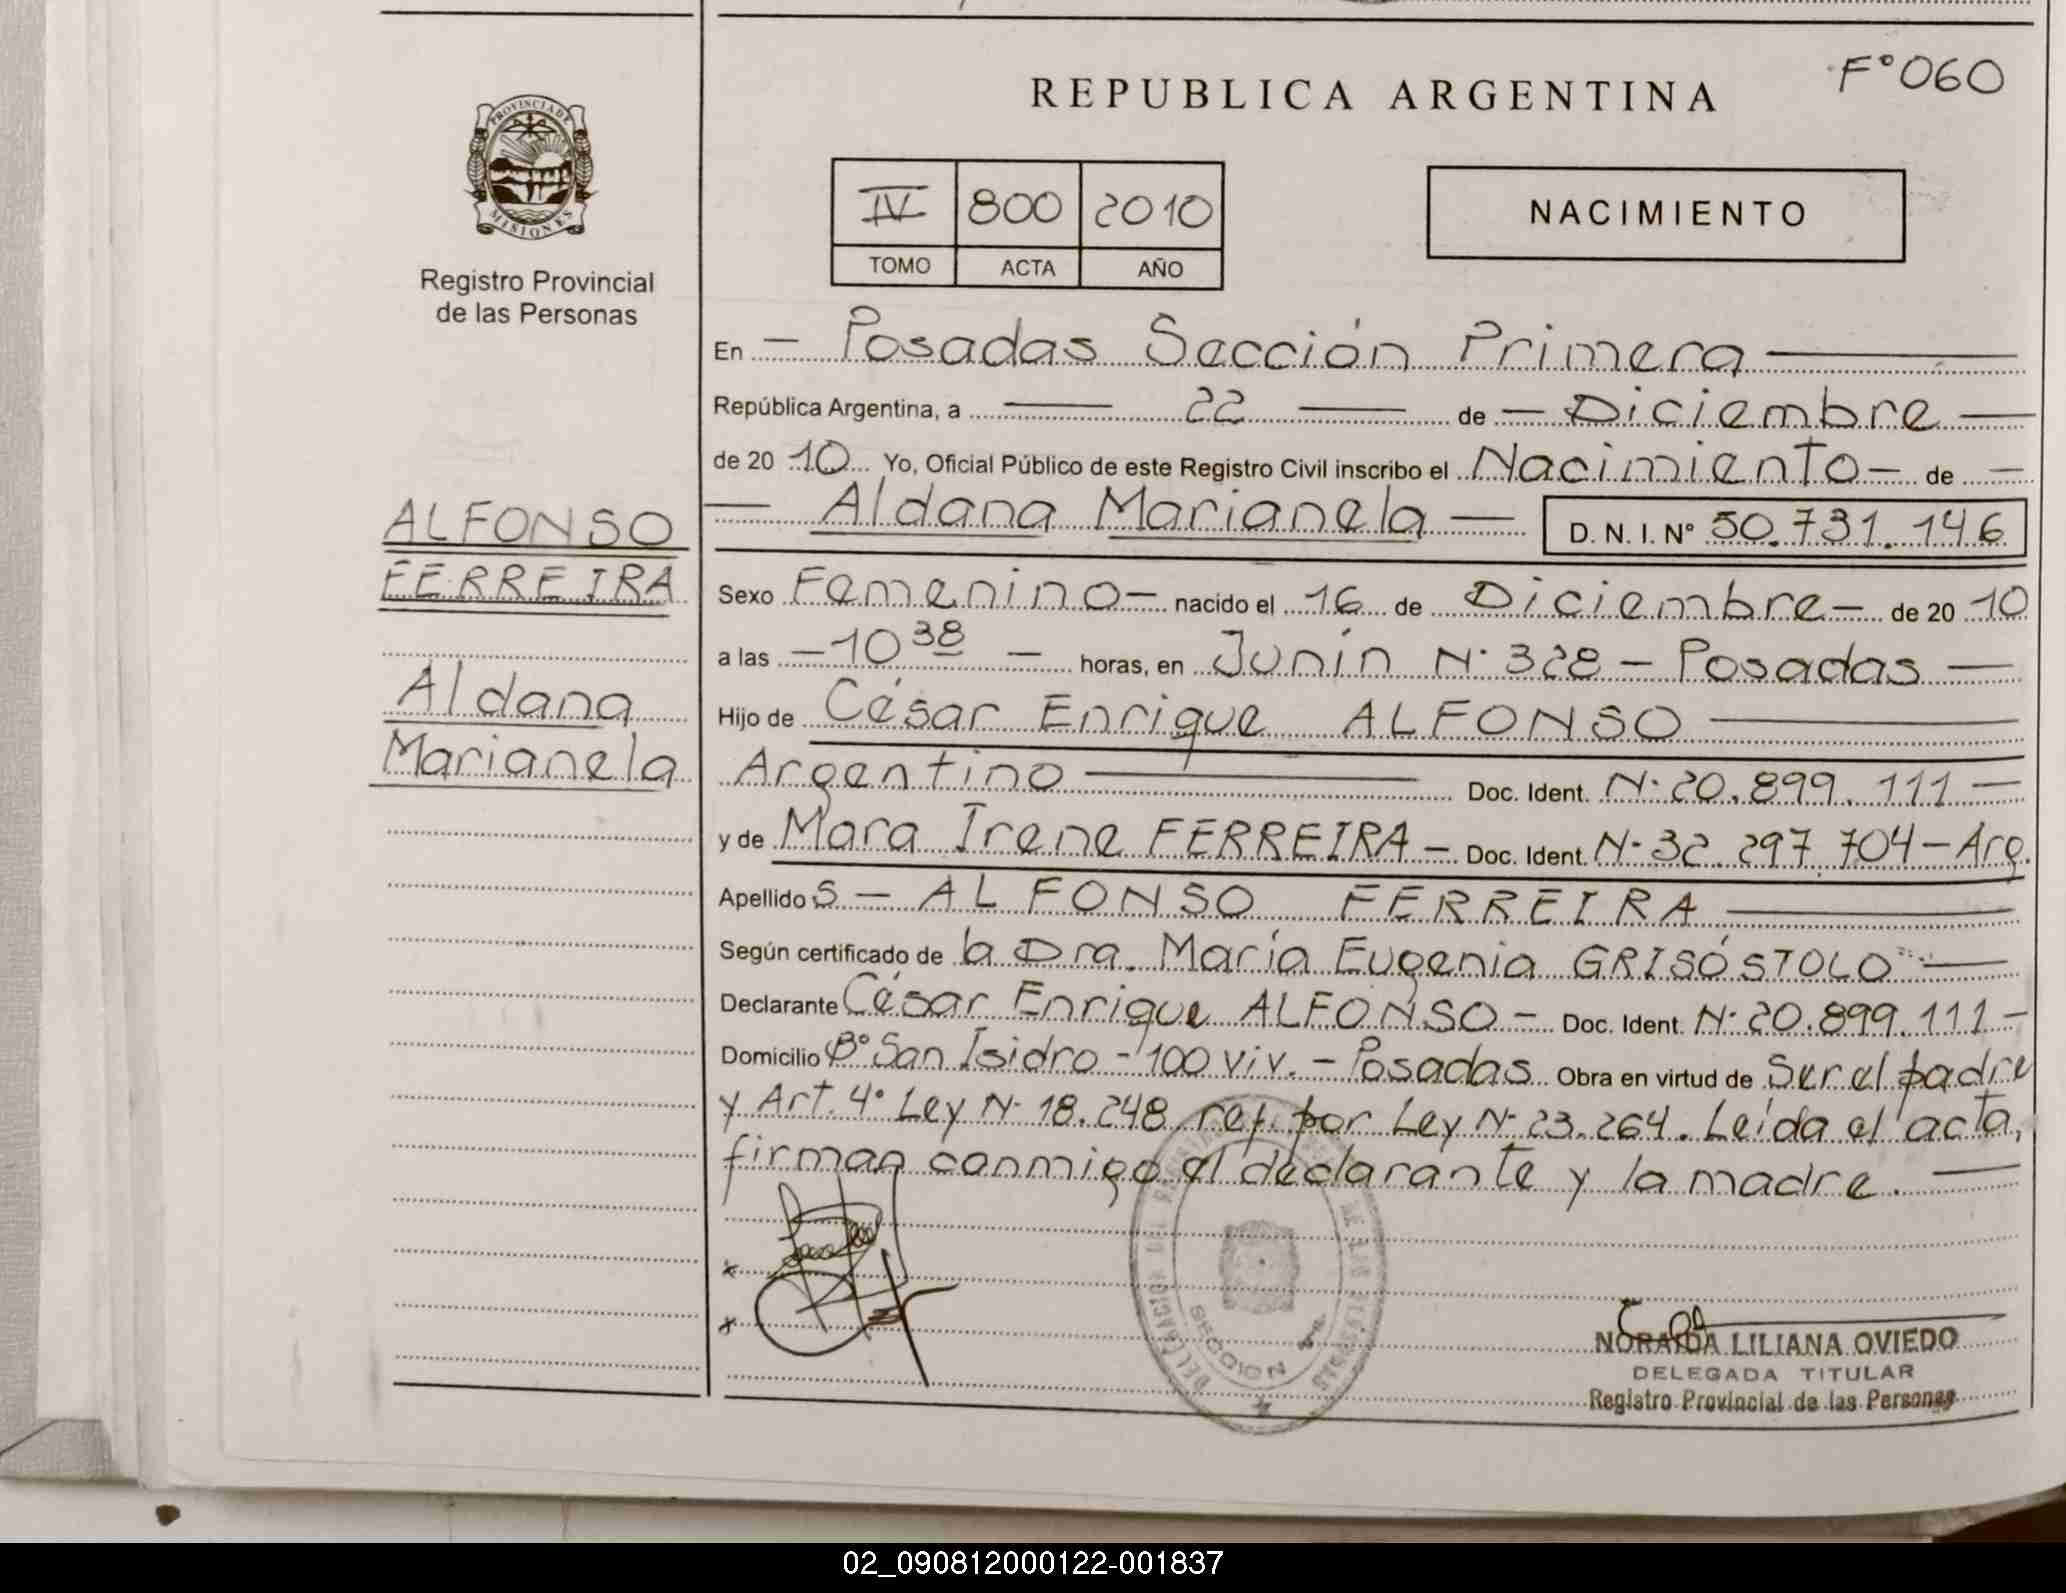 F° 060
REPUBLICA ARGENTINA
PROVINCIA DE
MISIONES
Registro Provincial
de las Personas
IV 800 2010
TOMO ACTA AÑO
NACIMIENTO
En — Posadas Sección Primera —
República Argentina, a — 22 — de — Diciembre —
de 20 10 Yo, Oficial Público de este Registro Civil inscribo el Nacimiento — de —
— Aldana Marianela — D. N. I. N° 50.731.146
ALFONSO
FERREIRA
Aldana
Marianela
Sexo Femenino — nacido el 16 de Diciembre — de 20 10
a las — 10 38 — horas, en Junín N° 328 — Posadas —
Hijo de César Enrique ALFONSO —
Argentino — Doc. Ident. N° 20.899.111 —
y de Mara Irene FERREIRA — Doc. Ident. N° 32.297.704 — Arg.
Apellido s — ALFONSO FERREIRA —
Según certificado de la Dra. María Eugenia GRISÓSTOLO —
Declarante César Enrique ALFONSO — Doc. Ident. N° 20.899.111 —
Domicilio B° San Isidro - 100 viv. — Posadas Obra en virtud de Ser el padre
y Art. 4° Ley N° 18.248 ref. por Ley N° 23.264. Leída el acta,
firman conmigo el declarante y la madre. —
SECCION
NORAIDA LILIANA OVIEDO
DELEGADA TITULAR
Registro Provincial de las Personas
02_090812000122-001837